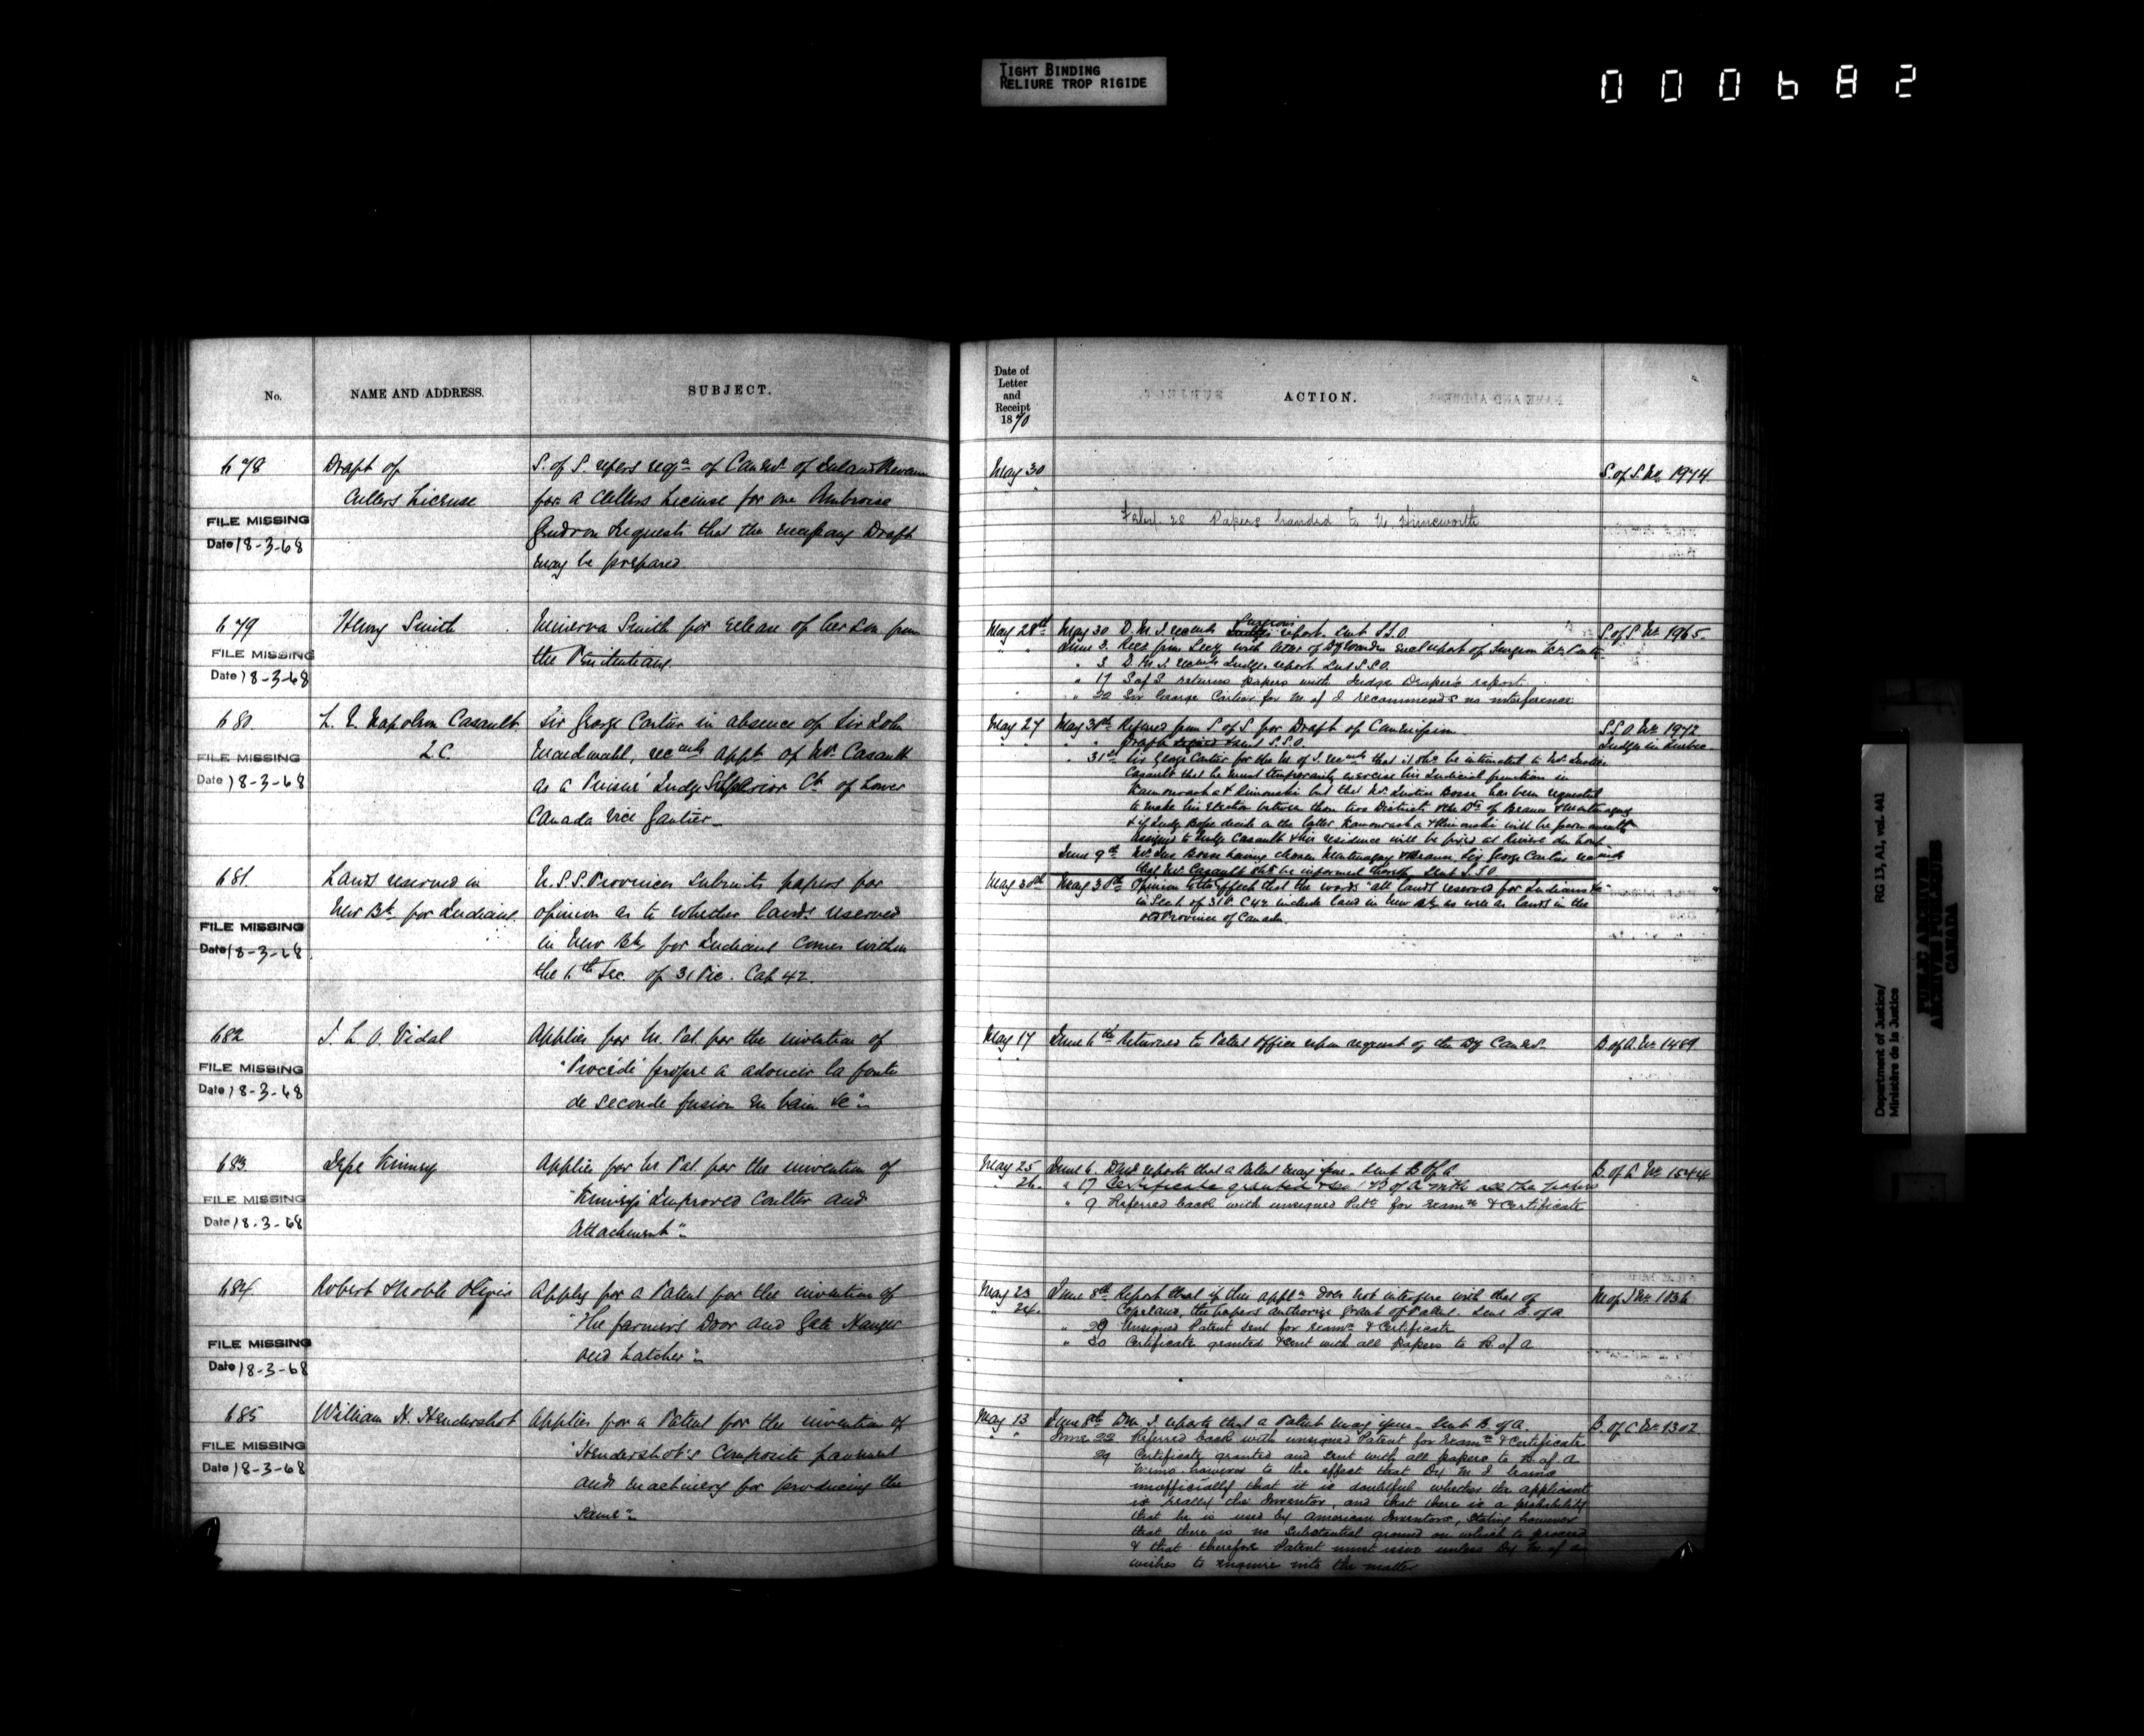 TIGHT BINDING
RELIURE TROP RIGIDE
000682
No.
NAME AND ADDRESS.
SUBJECT.
678
Draft of
Cullers License
FILE MISSING
Date 18-3-68
S. of S. refers reqn of Comr. of Inland Revenue
for a Cullers License for one Ambroise
Gendron Requests that the necessary Draft
may be prepared
679
Henry Smith
FILE MISSING
Date 18-3-68
Minerva Smith for release of her son from
the Penitentiary.
680.
L. N. Napoleon Casault
Q.C.
FILE MISSING
Date 18-3-68
Sir George Cartier in absence of Sir John
Macdonald, recmds appt. of Mr. Casault
as a Puisné Judge Superior Ct. of Lower
Canada vice Gautier
681.
Lands reserved in
New Bk. for Indians.
FILE MISSING
Date 18-3-68
U.S.S. Provinces submits papers for
opinion as to whether lands reserved
in New Bk. for Indians comes within
the 6th Sec. of 31 Vic. Cap 42.
682
J. L. O. Vidal
FILE MISSING
Date 18-3-68
Applies for Lr. Pat. for the invention of
"Procédé propre a adoucir la fonte
de seconde fusion en bain &c"
683.
Kinney
FILE MISSING
Date 18-3-68
Applies for Lr Pat. for the invention of
"Kinney's Improved Coulter and
Attachment"
684.
Robert Noble
FILE MISSING
Date 18-3-68
Applys for a Patent for the invention of
"The farmers Door and Gate Hanger
and Latcher"
685
William H. Hendershot
FILE MISSING
Date 18-3-68
Applies for a Patent for the invention of
"Hendershot's Composite pavement
and machinery for producing the
same"
Date of
Letter
and
Receipt
1870
ACTION.
May 30
S. of S. No. 1974.
Papers handed to
May 28th
May 30 D. M. J. recmds report. Sent S.S.O.
S. of S. No. 1965.
June 3.
" 3 D. M. J. recmds Judges report Sent S.S.O.
" 17 S of S returns papers with Judge Draper's report
" 22 Sir George Cartier for M. of J. recommends no interference
May 27
May 30th Refered from S. of S. for Draft of Commission
S.S.O. No. 1972
" " Draft sent S.S.O.
Judges in Quebec
" 31st Sir George Cartier for the M of J. recmds that it shd. be intimated to Mr. Justice
Casault that he must temporarily exercise his Judicial function in
Kamouraska & Rimouski but that Mr. Justice Bossé has been requested
to make his election between those two Districts & the Ds. of Beauce & Montmagny
& if Judge Bossé decide on the latter Kamouraska & Rimouski will be permanently
assigned to Judge Casault & his residence will be fixed at Rivière du Loup
June 9th Mr. Jus. Bossé having chosen Montmagny & Beauce, Sir George Cartier recmds
that Mr. Casault shd be informed thereof. Sent S.S.O
May 30th
May 30th Opinion to the effect that the words "all lands reserved for Indians &c"
in Sec 6. of 31 V. C 42 include land in New Bk. as well as lands in the
old Province of Canada.
May 17
June 6th Returned to Patent Office upon request of the Dy Comr.
B. of A. No. 1489
May 25
June 6. reports that a Patent may issue. Sent B of A
B. of A. No. 1544
" 26.
" 17 Certificate granted & sent B of A with all the papers
" 9 Referred back with unsigned Patt. for examn. & Certificate
May 23
June 8th Report that if this appln. does not interfere with that of
M of J No. 1036
" 24.
Copeland, the papers authorize grant of Patent. Sent B. of A
" 29 Unsigned Patent sent for examn. & Certificate
" 30 Certificate granted & sent with all papers to B. of A
May 13
June 8th D.M. J. reports that a Patent may issue. Sent B. of A.
B. of A No. 1302
June 22 Referred back with unsigned Patent for examn. & Certificate
29 Certificate granted and sent with all papers to B. of A
Memo. however to the effect that Dy. M. J. learns
unofficially that it is doubtful whether the applicant
is really the Inventor, and that there is a probability
that he is used by American Inventors, stating however
that there is no substantial ground on which to proceed
& that therefore Patent must issue unless Dy. M. of A
wishes to enquire into the matter
Department of Justice/
Ministère de la Justice
RG 13, A1, vol. 441
PUBLIC ARCHIVES
ARCHIVES PUBLIQUES
CANADA